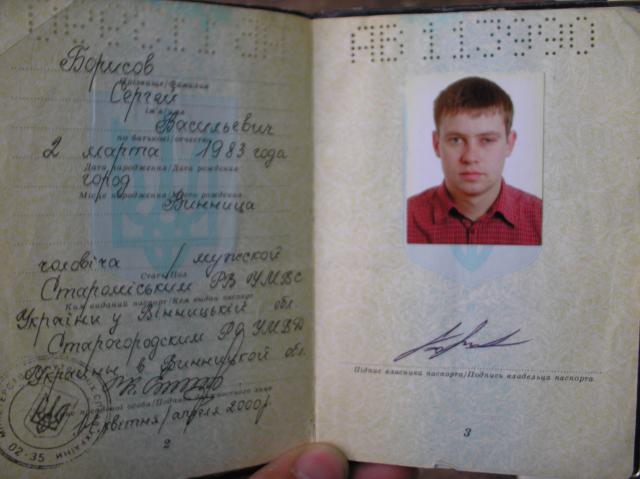 Борисов
Прізвище/Фамилия
Сергей
Ім'я/Имя
Васильевич
По батькові/Отчество
2 марта 1983 года
Дата народження/Дата рождения
город
Місце народження/Место рождения
Винница
чоловіча / мужской
Стать/Пол
Староміським РВ УМВС
Ким виданий паспорт/Кем выдан паспорт
України у Вінницькій обл.
Старогородским РО УМВД
Украины в Винницкой обл.
квітня/апреля 2000р
02-35
2
АВ 113990
Підпис власника паспорта/Подпись владельца паспорта
3